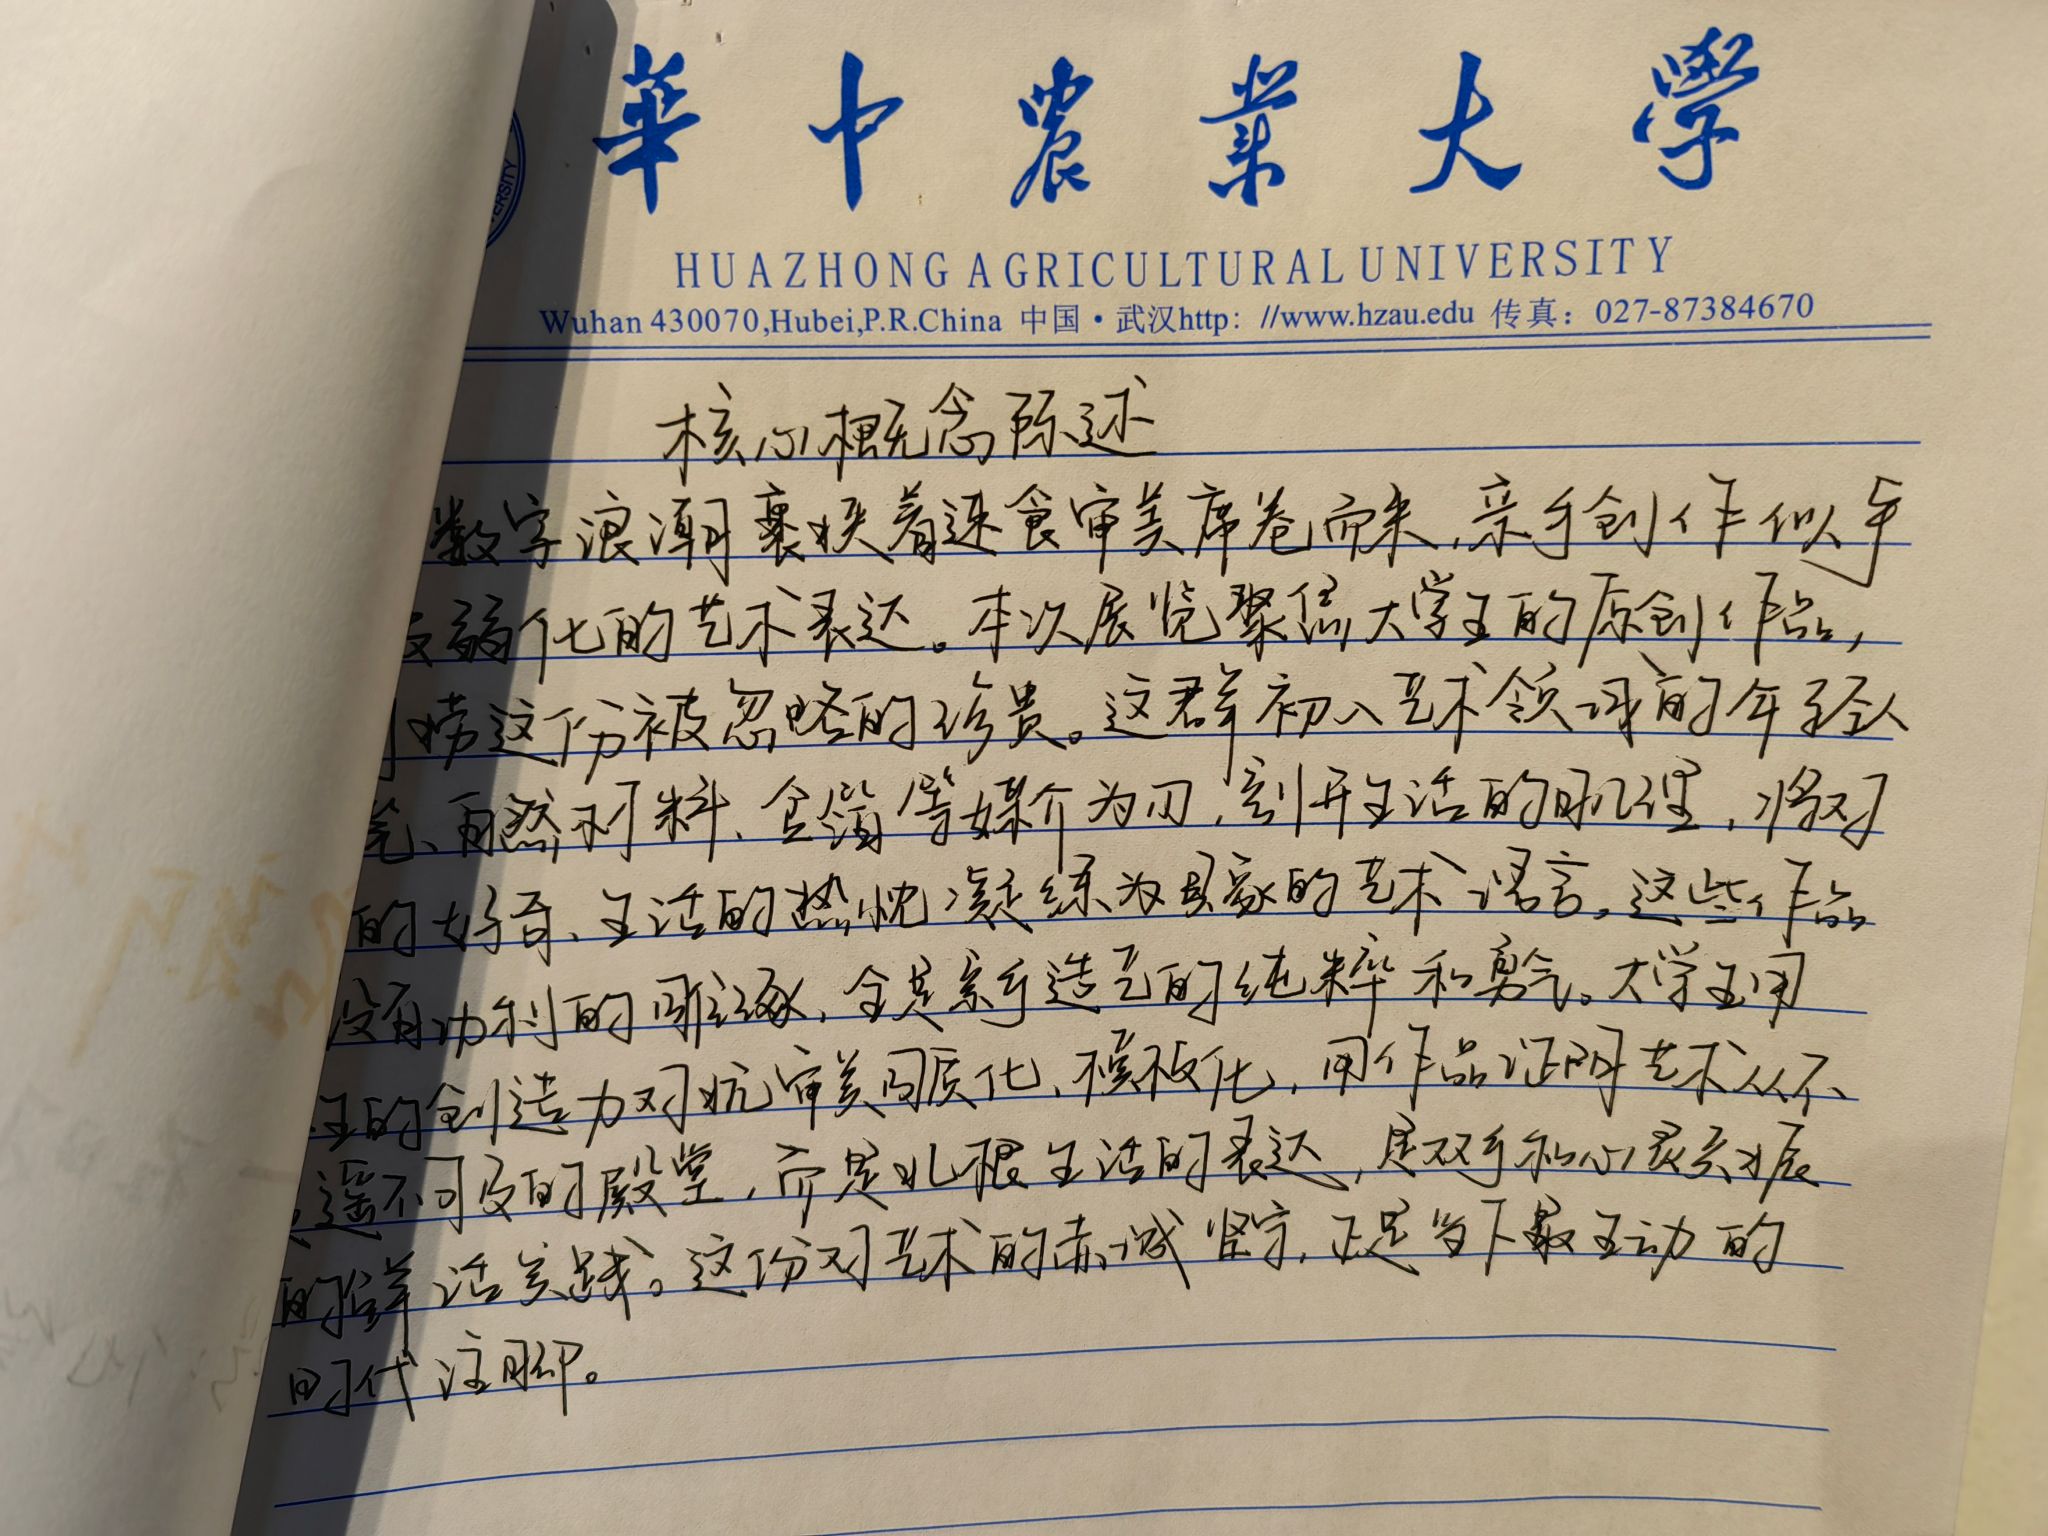 華中農業大學
HUAZHONG AGRICULTURAL UNIVERSITY
Wuhan 430070,Hubei,P.R.China 中国·武汉http: //www.hzau.edu 传真: 027-87384670
ERSITY
核心概念陈述
数字浪潮裹挟着速食审美席卷而来,亲手创作似乎
弱化的艺术表达。本次展览聚焦大学生的原创作品,
捞这份被忽略的珍贵。这群初入艺术领域的年轻人
笔、自然材料、食馅等媒介为刃,割开生活的肌理,将对
的好奇、生活的热忱凝练为具象的艺术语言。这些作品
没有功利的雕琢,全是亲手造艺的纯粹和勇气。大学生用
生的创造力对抗审美同质化、模板化,用作品证明艺术从不
遥不可及的殿堂,而是扎根生活的表达,是双手和心灵共振
的鲜活实践。这份对艺术的赤诚坚守,正是当下最生动的
时代注脚。